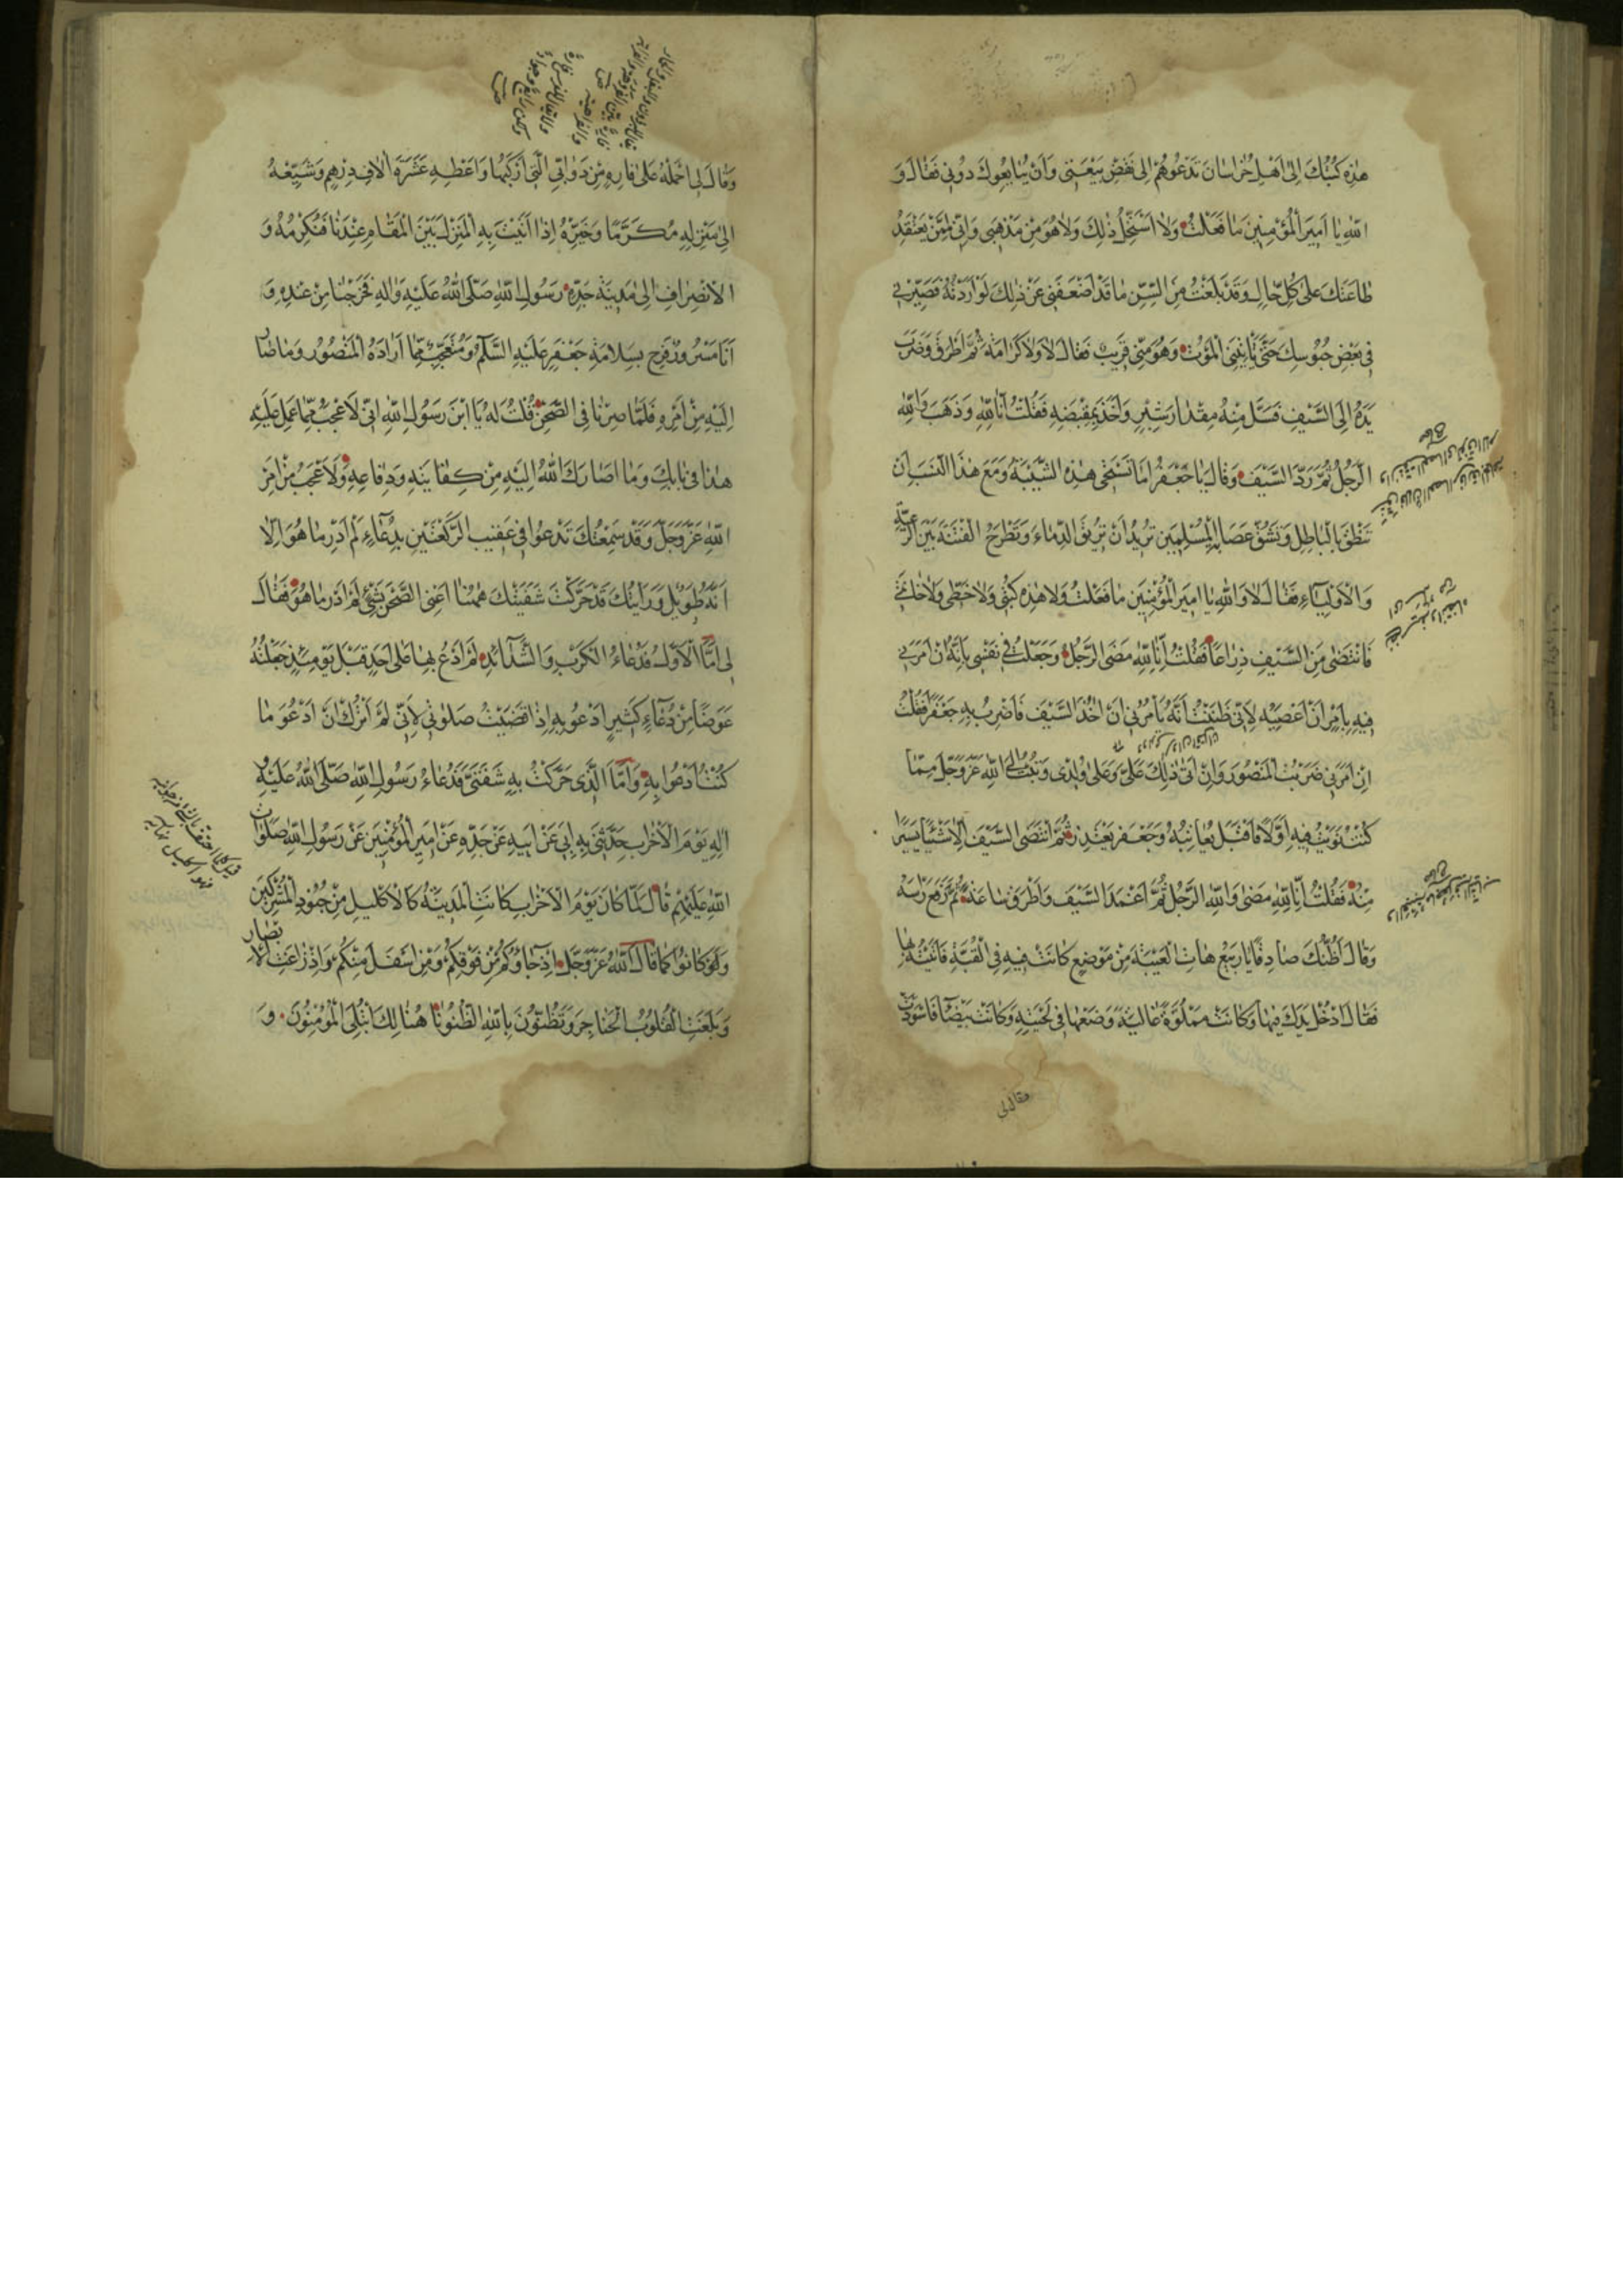 هٰذِهِ كُتُبُكَ اِلىٰ اَهْلِ خُرٰاسٰانَ تَدْعُوهُمْ اِلىٰ نَقْضِ بَيْعَتِى وَاَنْ يُبٰايِعُوكَ دُونِى فَقٰالَ وَ
اللّٰهِ يٰا اَمِيرَ الْمُؤْمِنِينَ مٰا فَعَلْتُ وَلٰا اَسْتَحِلُّ ذٰلِكَ وَلٰا هُوَ مِنْ مَذْهَبِى وَاِنِّى لَمِمَّنْ يَعْتَقِدُ
طٰاعَتَكَ عَلىٰ كُلِّ حٰالٍ وَقَدْ بَلَغْتُ مِنَ السِّنِّ مٰا قَدْ اَضْعَفَنِى عَنْ ذٰلِكَ لَوْ اَرَدْتُهُ فَصَيِّرْنِى
فِى بَعْضِ حُبُوسِكَ حَتّىٰ يَأْتِيَنِى الْمَوْتُ وَهُوَ مِنِّى قَرِيبٌ فَقٰالَ لٰا وَلٰا كَرٰامَةَ ثُمَّ اَطْرَقَ وَضَرَبَ
يَدَهُ اِلَى السَّيْفِ فَسَلَّ مِنْهُ مِقْدٰارَ شِبْرٍ وَاَخَذَ بِمَقْبِضِهِ فَقُلْتُ اِنّٰا لِلّٰهِ وَذَهَبَ وَاللّٰهِ
الرَّجُلُ ثُمَّ رَدَّ السَّيْفَ وَقٰالَ يٰا جَعْفَرُ اَمٰا تَسْتَحِى هٰذِهِ الشَّيْبَةَ وَمَعَ هٰذَا النَّسَبِ اَنْ
تَنْطِقَ بِالْبٰاطِلِ وَتَشُقَّ عَصَا الْمُسْلِمِينَ تُرِيدُ اَنْ تُرِيقَ الدِّمٰاءَ وَتَطْرَحَ الْفِتْنَةَ بَيْنَ الرَّعِيَّةِ
وَالْاَوْلِيٰاءِ فَقٰالَ لٰا وَاللّٰهِ يٰا اَمِيرَ الْمُؤْمِنِينَ مٰا فَعَلْتُ وَلٰا هٰذِهِ كُتُبِى وَلٰا خَطِّى وَلٰا خٰاتَمِى
فَانْتَضىٰ مِنَ السَّيْفِ ذِرٰاعًا فَقُلْتُ اِنّٰا لِلّٰهِ مَضَى الرَّجُلُ وَجَعَلْتُ فِى نَفْسِى بِاَنَّهُ اِنْ اَمَرَنِى
فِيهِ بِاَمْرٍ اَنْ اَعْصِيَهُ لِاَنِّى ظَنَنْتُ اَنَّهُ يَأْمُرُنِى اَنْ اٰخُذَ السَّيْفَ فَاَضْرِبَ بِهِ جَعْفَرًا فَقُلْتُ
اِنْ اَمَرَنِى ضَرَبْتُ الْمَنْصُورَ وَاِنْ اَتىٰ ذٰلِكَ عَلَىَّ وَعَلىٰ وُلْدِى وَتُبْتُ اِلَى اللّٰهِ عَزَّ وَجَلَّ مِمّٰا
كُنْتُ نَوَيْتُ فِيهِ اَوَّلًا فَاَقْبَلَ يُعٰاتِبُهُ وَجَعْفَرٌ يَعْتَذِرُ ثُمَّ انْتَضَى السَّيْفَ اِلّٰا شَيْئًا يَسِيرًا
مِنْهُ فَقُلْتُ اِنّٰا لِلّٰهِ مَضىٰ وَاللّٰهِ الرَّجُلُ ثُمَّ اَغْمَدَ السَّيْفَ وَاَطْرَقَ سٰاعَةً ثُمَّ رَفَعَ رَأْسَهُ
وَقٰالَ اَظُنُّكَ صٰادِقًا يٰا رَبِيعُ هٰاتِ الْعَيْبَةَ مِنْ مَوْضِعٍ كٰانَتْ فِيهِ فِى الْقُبَّةِ فَاَتَيْتُهُ بِهٰا
فَقٰالَ اَدْخِلْ يَدَكَ فِيهٰا وَكٰانَتْ مَمْلُوَّةً غٰالِيَةً وَضَعْهٰا فِى لِحْيَتِهِ وَكٰانَتْ بَيْضٰاءَ فَاسْوَدَّتْ
وَقٰالَ لِى احْمِلْهُ عَلىٰ فٰارِهٍ مِنْ دَوٰابِّى الَّتِى اَرْكَبُهٰا وَاَعْطِهِ عَشَرَةَ اٰلٰافِ دِرْهَمٍ وَشَيِّعْهُ
اِلىٰ مَنْزِلِهِ مُكَرَّمًا وَخَيِّرْهُ اِذٰا اَتَيْتَ بِهِ الْمَنْزِلَ بَيْنَ الْمُقٰامِ عِنْدَنٰا فَنُكْرِمُهُ وَ
الْاِنْصِرٰافِ اِلىٰ مَدِينَةِ جَدِّهِ رَسُولِ اللّٰهِ صَلَّى اللّٰهُ عَلَيْهِ وَاٰلِهِ فَخَرَجْنٰا مِنْ عِنْدِهِ وَ
اَنَا مَسْرُورٌ فَرِحٌ بِسَلٰامَةِ جَعْفَرٍ عَلَيْهِ السَّلٰامُ وَمُتَعَجِّبٌ مِمّٰا اَرٰادَهُ الْمَنْصُورُ وَمٰا صٰارَ
اِلَيْهِ مِنْ اَمْرِهِ فَلَمّٰا صِرْنٰا فِى الصَّحْنِ قُلْتُ لَهُ يَا ابْنَ رَسُولِ اللّٰهِ اِنِّى لَاَعْجَبُ مِمّٰا عَمِلَ عَلَيْهِ
هٰذٰا فِى بٰابِكَ وَمٰا اَصٰارَكَ اللّٰهُ اِلَيْهِ مِنْ كِفٰايَتِهِ وَدِفٰاعِهِ وَلٰا عَجَبَ مِنْ اَمْرِ
اللّٰهِ عَزَّ وَجَلَّ وَقَدْ سَمِعْتُكَ تَدْعُوا فِى عَقِيبِ الرَّكْعَتَيْنِ بِدُعٰاءٍ لَمْ اَدْرِ مٰا هُوَ اِلّٰا
اَنَّهُ طَوِيلٌ وَرَاَيْتُكَ قَدْ حَرَّكْتَ شَفَتَيْكَ هٰهُنٰا اَعْنِى الصَّحْنَ بِشَىْءٍ لَمْ اَدْرِ مٰا هُوَ فَقٰالَ
لِى اَمَّا الْاَوَّلُ فَدُعٰاءُ الْكَرْبِ وَالشَّدٰائِدِ لَمْ اَدْعُ بِهٰا عَلىٰ اَحَدٍ قَبْلَ يَوْمَئِذٍ جَعَلْتُهُ
عِوَضًا مِنْ دُعٰاءٍ كَثِيرٍ اَدْعُو بِهِ اِذٰا قَضَيْتُ صَلٰوتِى لِاَنِّى لَمْ اَتْرُكْ اَنْ اَدْعُوَ مٰا
كُنْتُ اَدْعُوا بِهِ وَاَمَّا الَّذِى حَرَّكْتُ بِهِ شَفَتَىَّ فَدُعٰاءُ رَسُولِ اللّٰهِ صَلَّى اللّٰهُ عَلَيْهِ وَ
اٰلِهِ يَوْمَ الْاَحْزٰابِ حَدَّثَنِى بِهِ اَبِى عَنْ اَبِيهِ عَنْ جَدِّهِ عَنْ اَمِيرِ الْمُؤْمِنِينَ عَنْ رَسُولِ اللّٰهِ صَلَوٰاتُ
اللّٰهِ عَلَيْهِمْ قٰالَ لَمّٰا كٰانَ يَوْمُ الْاَحْزٰابِ كٰانَتِ الْمَدِينَةُ كَالْاِكْلِيلِ مِنْ جُنُودِ الْمُشْرِكِينَ
وَكٰانُوا كَمٰا قٰالَ اللّٰهُ عَزَّ وَجَلَّ اِذْ جٰاؤُكُمْ مِنْ فَوْقِكُمْ وَمِنْ اَسْفَلَ مِنْكُمْ وَاِذْ زٰاغَتِ الْاَبْصٰارُ
وَبَلَغَتِ الْقُلُوبُ الْحَنٰاجِرَ وَتَظُنُّونَ بِاللّٰهِ الظُّنُونٰا هُنٰالِكَ ابْتُلِىَ الْمُؤْمِنُونَ وَ